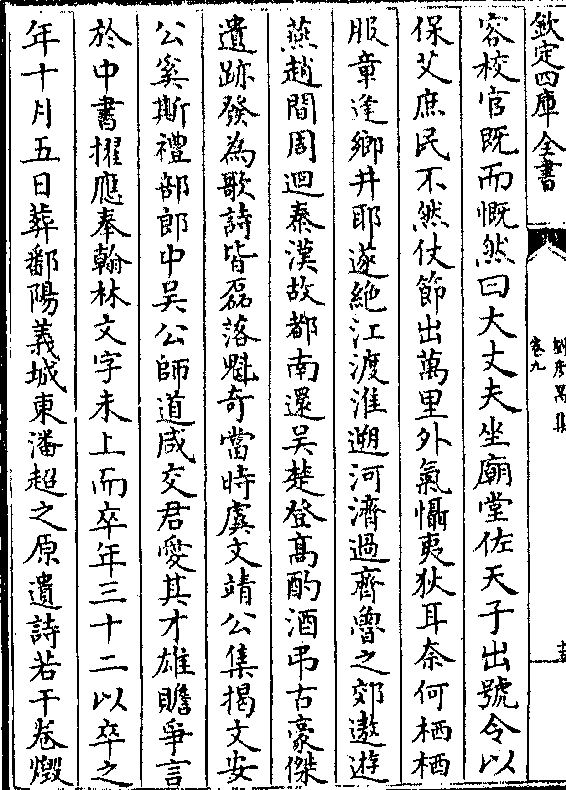 欽定四庫全書
卷九
客校官既而慨然曰大丈夫坐廟堂佐天子出號令以
保艾庶民不然仗節出萬里外氣懾夷狄耳奈何栖栖
服章逢鄉井耶遂絶江渡淮遡河濟過齊魯之郊遨遊
燕趙間周迴秦漢故都南還吳楚登髙酌酒弔古豪傑
遺跡發為歌詩皆磊落魁奇當時虞文靖公集掲文安
公奚斯禮部郎中吳公師道咸交君愛其才雄贍爭言
於中書擢應奉翰林文字未上而卒年三十二以卒之
年十月五日葬鄱陽義城東潘超之原遺詩若干卷燬